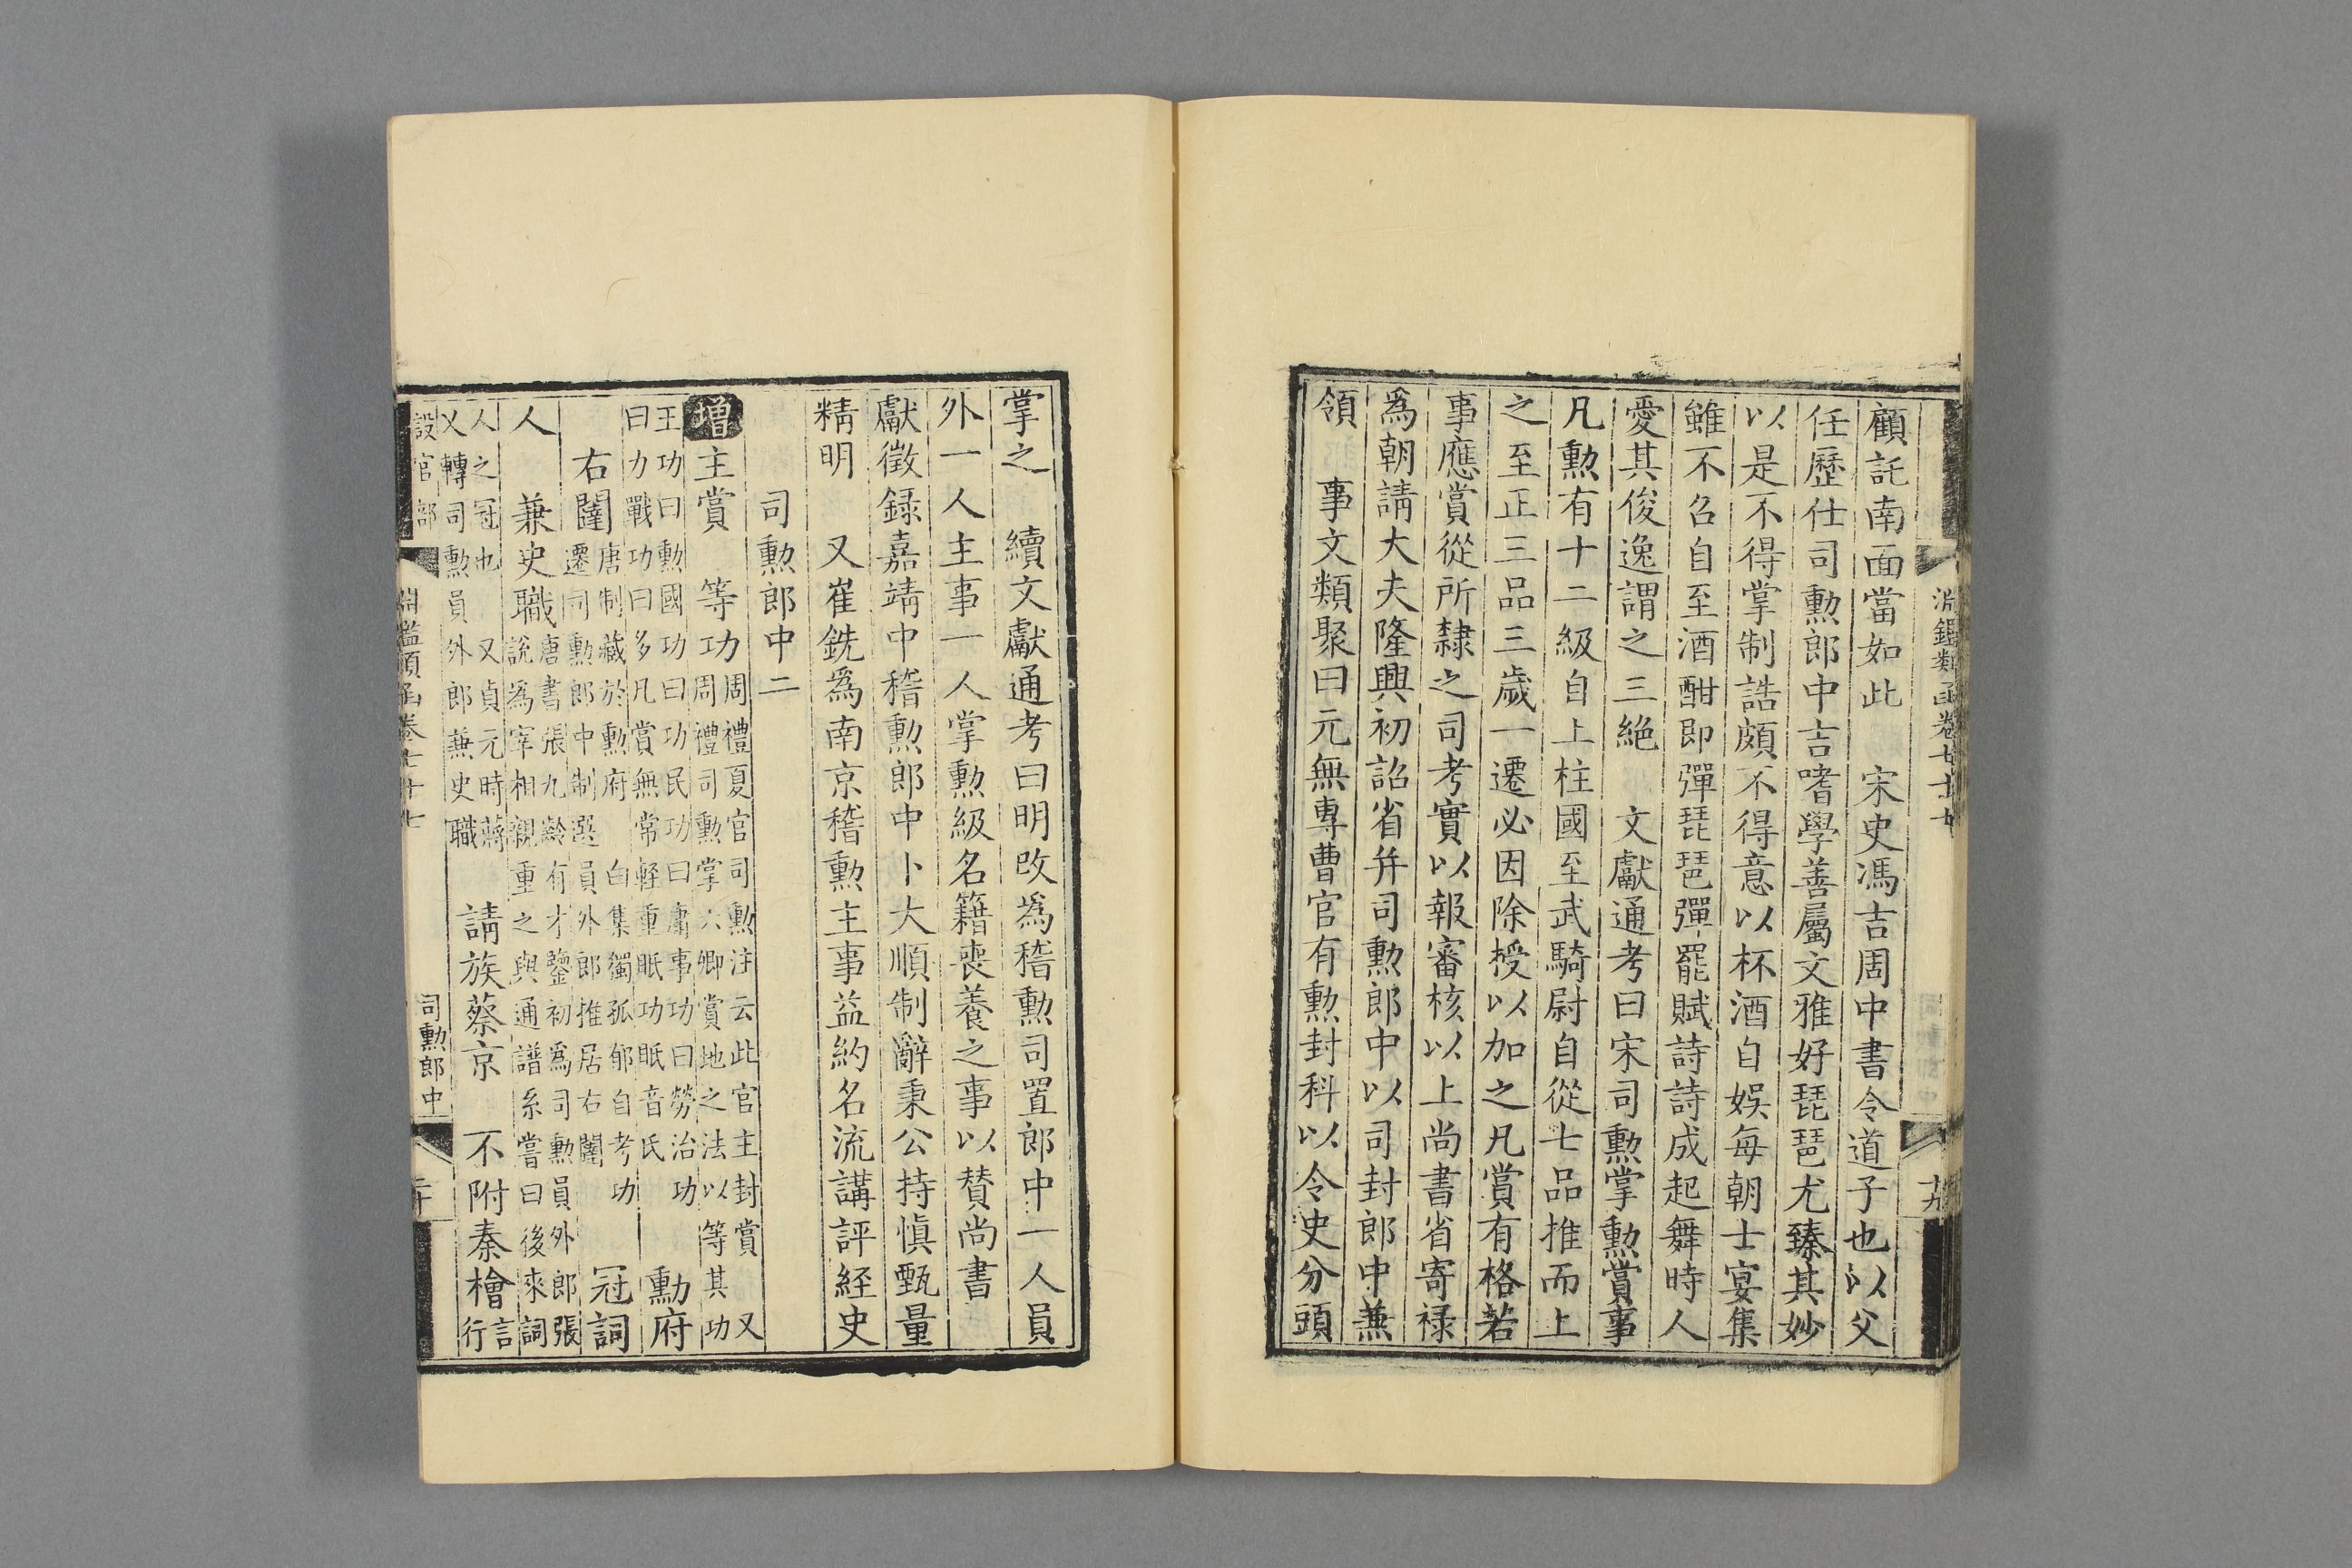 淵鑑類函卷七十七
十九
顧託南面當如此　宋史馮吉周中書令道子也以父
任歷仕司勲郎中吉嗜學善屬文雅好琵琶尤臻其妙
以是不得掌制誥頗不得意以杯酒自娛每朝士宴集
雖不召自至酒酣即彈琵琶彈罷賦詩詩成起舞時人
愛其俊逸謂之三絶　文獻通考曰宋司勲掌勲賞事
凡勲有十二級自上柱國至武騎尉自從七品推而上
之至正三品三歲一遷必因除授以加之凡賞有格若
事應賞從所隸之司考實以報審核以上尚書省寄禄
為朝請大夫隆興初詔省并司勲郎中以司封郎中兼
領　事文類聚曰元無專曹官有勲封科以令史分頭
掌之　續文獻通考曰明改為稽勲司置郎中一人員
外一人主事一人掌勲級名籍喪養之事以賛尚書
獻徵録嘉靖中稽勲郎中卜大順制辭秉公持慎甄量
精明　又崔銑為南京稽勲主事益約名流講評經史
司勲郎中二
增主賞　等功　周禮夏官司勲注云此官主封賞　又周禮司勲掌六卿賞地之法以等其功
王功曰勲國功曰功民功曰庸事功曰勞治功曰力戰功曰多凡賞無常輕重眡功眡音氏　勲府
右闥　唐制藏於勲府　白集獨孤郁自考功遷司勲郎中制選員外郎推居右闥　冠詞
人　兼史職　唐書張九齡有才鑒初為司勲員外郎張說為宰相親重之與通譜系嘗曰後來詞
人之冠也　又貞元時蔣乂轉司勲員外郎兼史職　請族蔡京　不附秦檜　言行
設官部　淵鑑類函卷七十七　司勲郎中　二十